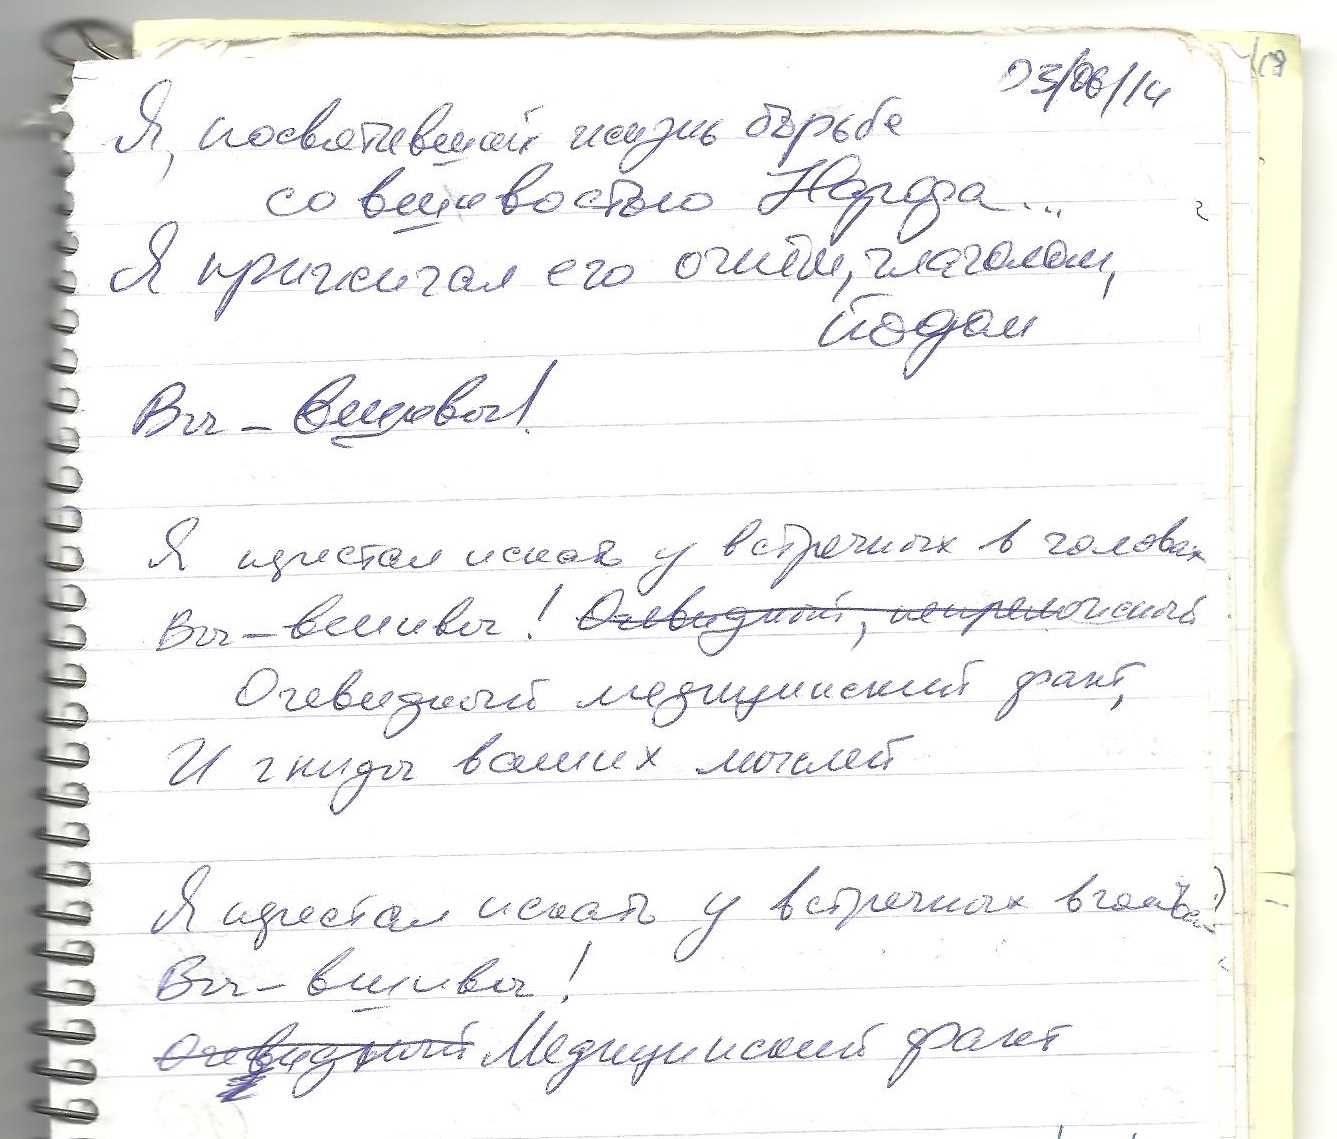 03/06/14
Я, посвятивший жизнь борьбе
со вшивостью Народа...
Я прижигал его огнём, глаголом,
йодом
Вы – вшивы!
Я перестал искать у встречных в головах
Вы – вшивы! Очевидный, непреложный
Очевидный медицинский факт,
И гниды ваших мыслей
Я перестал искать у встречных в головах
Вы – вшивы!
Очевидный Медицинский факт